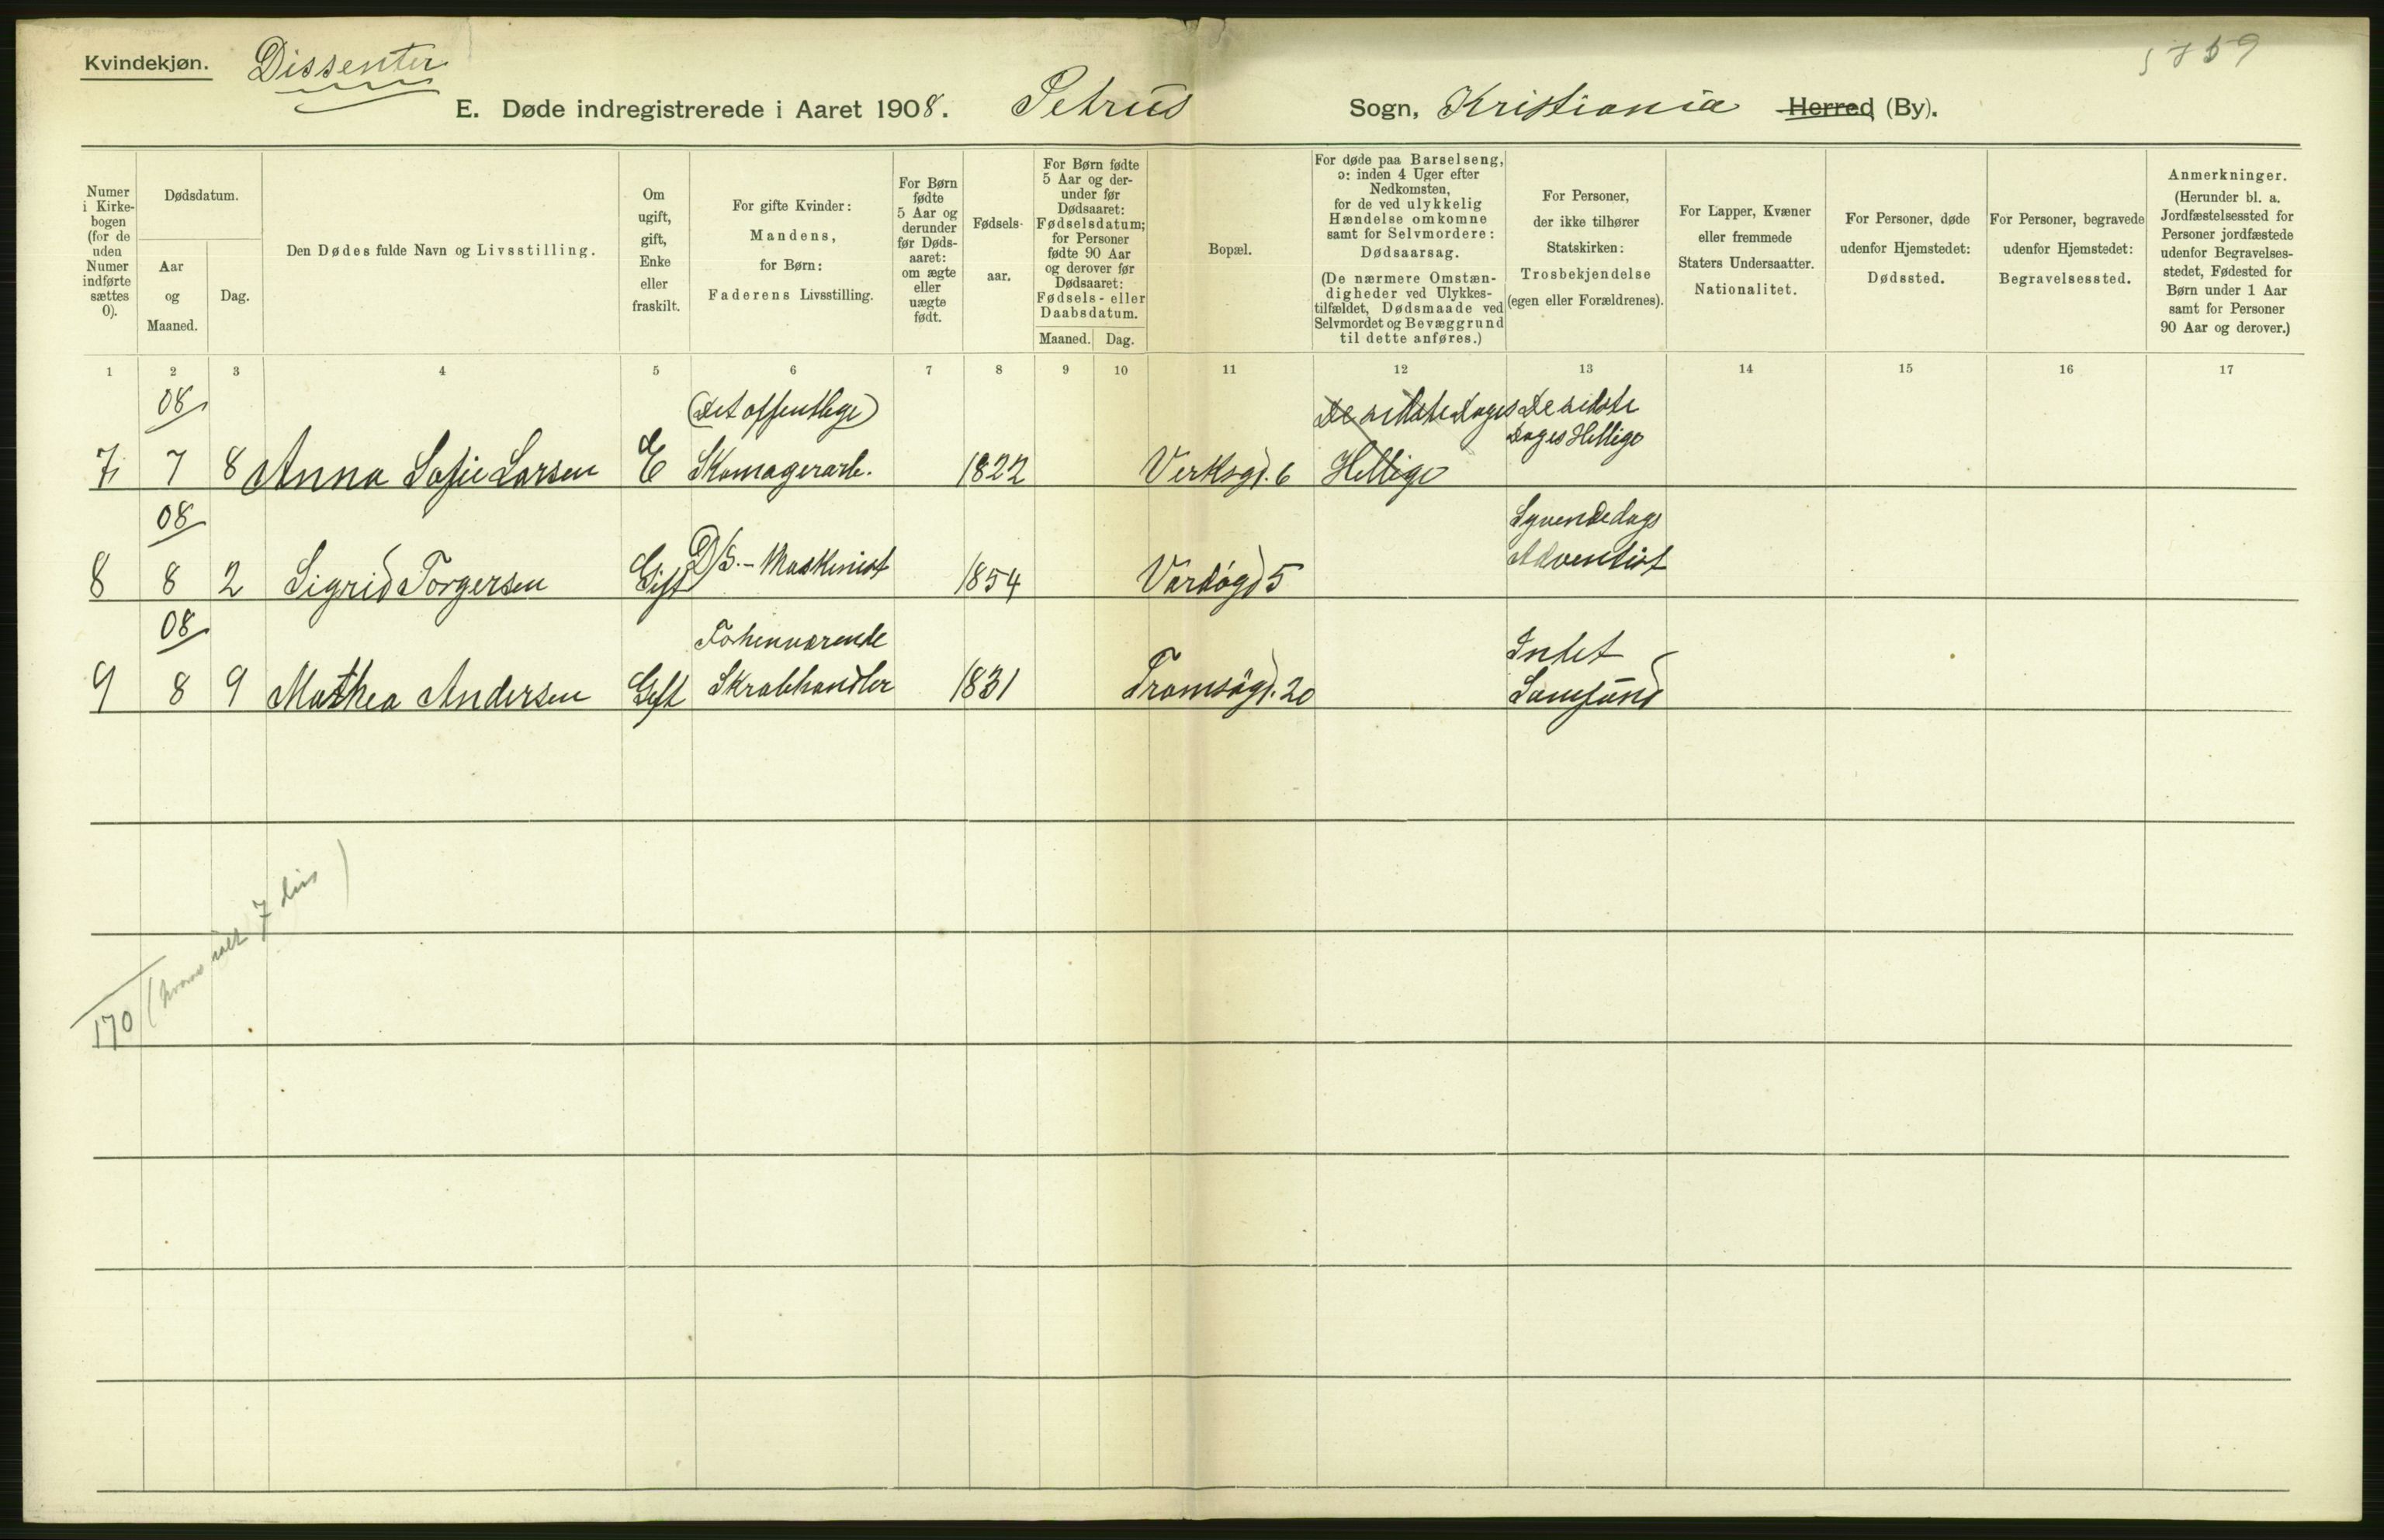 Kvindekjøn. Dissenter
E. Døde indregistrerede i Aaret 1908. Petrus Sogn, Kristiania Herred (By).
Numer
i Kirke-
bogen
(for de
uden
Numer
indførte
sættes
0).
Dødsdatum.
Aar
og
Maaned.
Dag.
Den Dødes fulde Navn og Livsstilling.
Om
ugift,
gift,
Enke
eller
fraskilt.
For gifte Kvinder:
Mandens,
for Børn:
Faderens Livsstilling.
For Børn
fødte
5 Aar og
derunder
før Døds-
aaret:
om ægte
eller
uægte
født.
Fødsels-
aar.
For Børn fødte
5 Aar og der-
under før
Dødsaaret:
Fødselsdatum;
for Personer
fødte 90 Aar
og derover før
Dødsaaret:
Fødsels- eller
Daabsdatum.
Maaned. Dag.
Bopæl.
For døde paa Barselseng,
ɔ: inden 4 Uger efter
Nedkomsten,
for de ved ulykkelig
Hændelse omkomne
samt for Selvmordere:
Dødsaarsag.
(De nærmere Omstæn-
digheder ved Ulykkes-
tilfældet, Dødsmaade ved
Selvmordet og Bevæggrund
til dette anføres.)
For Personer,
der ikke tilhører
Statskirken:
Trosbekjendelse
(egen eller Forældrenes).
For Lapper, Kvæner
eller fremmede
Staters Undersaatter.
Nationalitet.
For Personer, døde
udenfor Hjemstedet:
Dødssted.
For Personer, begravede
udenfor Hjemstedet:
Begravelsessted.
Anmerkninger.
(Herunder bl. a.
Jordfæstelsessted for
Personer jordfæstede
udenfor Begravelses-
stedet, Fødested for
Børn under 1 Aar
samt for Personer
90 Aar og derover.)
1 2 3 4 5 6 7 8 9 10 11 12 13 14 15 16 17
08 (Det offentlige) De sidste Dages De sidste
Dages Hellige
7 7 8 Anna Sofie Larsen E Skomagerarb. 1822 Verksgd. 6 Hellige
08 Syvendedags
8 8 2 Sigrid Torgersen Gift D/S.-Maskinist 1854 Vardøgd 5 Adventist
08 Forhenværende Intet
9 9 8 9 Mathea Andersen Gift Skrabhandler 1831 Tromsøgd. 20 Samfund
170 (hvorav ialt 7 diss)